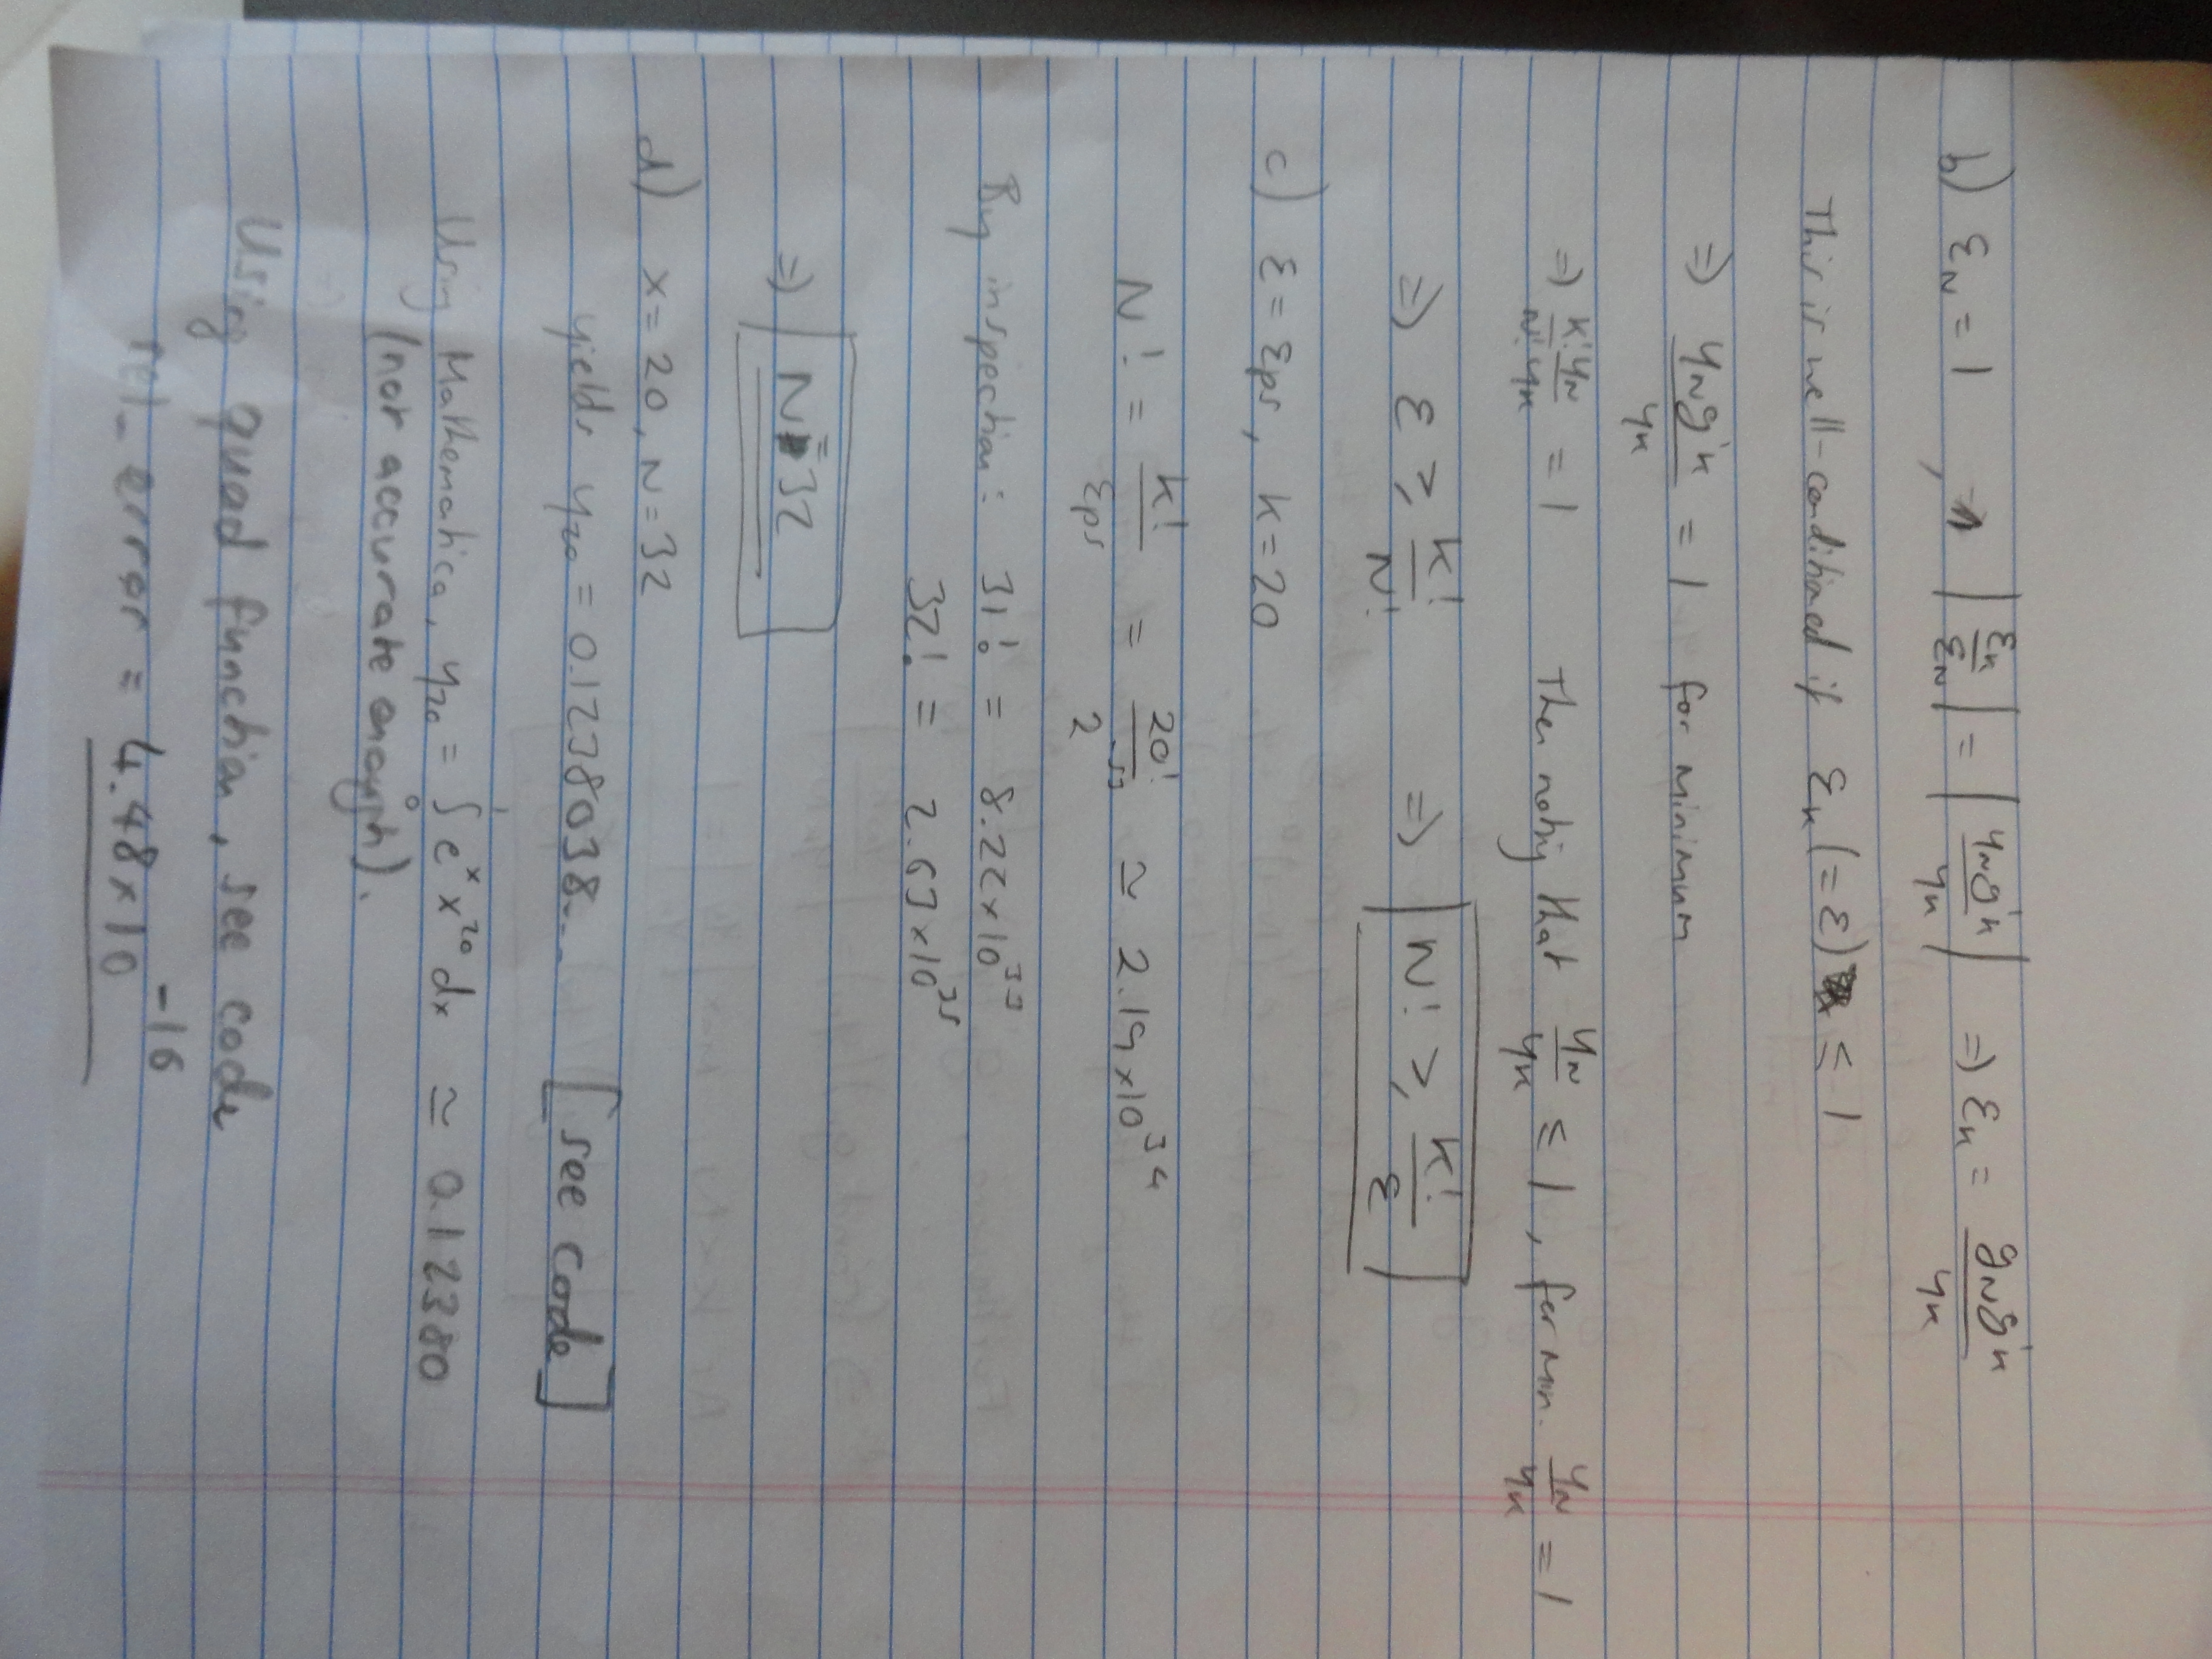 b) ε_N = 1 , ⇒ |ε_k/ε_N| = |y_N g'_k / y_k| ⇒ ε_k = y_N g'_k / y_k
This is well-conditioned if ε_k (=ε) ≤ 1
⇒ y_N g'_k / y_k = 1 for minimum
⇒ k! y_N / N! y_k = 1 Then noting that y_N/y_k ≤ 1, for min. y_N/y_k = 1
⇒ ε ≥ k!/N! ⇒ N! ≥ k!/ε
c) ε = εps, k=20
N! = k!/εps = 20!/2^-53 ≃ 2.19×10^34
By inspection: 31! = 8.22×10^33
32! = 2.63×10^35
⇒ N=32
d) x=20, N=32
yields y_20 = 0.1238038... [see code]
Using Mathematica, y_20 = ∫_0^1 e^x x^20 dx ≃ 0.12380
(not accurate enough).
Using quad function, see code
rel_error = 4.48×10^-16